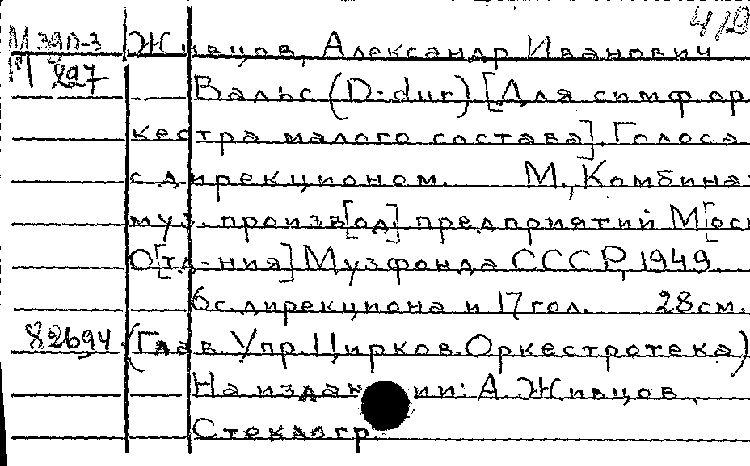 4/9
М 39П-3 Живцов, Александр Иванович
М 897 Вальс (D-dur) [Для симф ор
кестра малого состава]. Голоса
с дирекционом. М., Комбина
муз. произв[од] предприятий М[оск
О[тд-ния] Музфонда СССР, 1949.
6с. дирекциона и 17 гол. 28 см.
82694 (Глав. Упр. Цирков. Оркестротека)
На издании: А. Живцов.
Стеклогр.